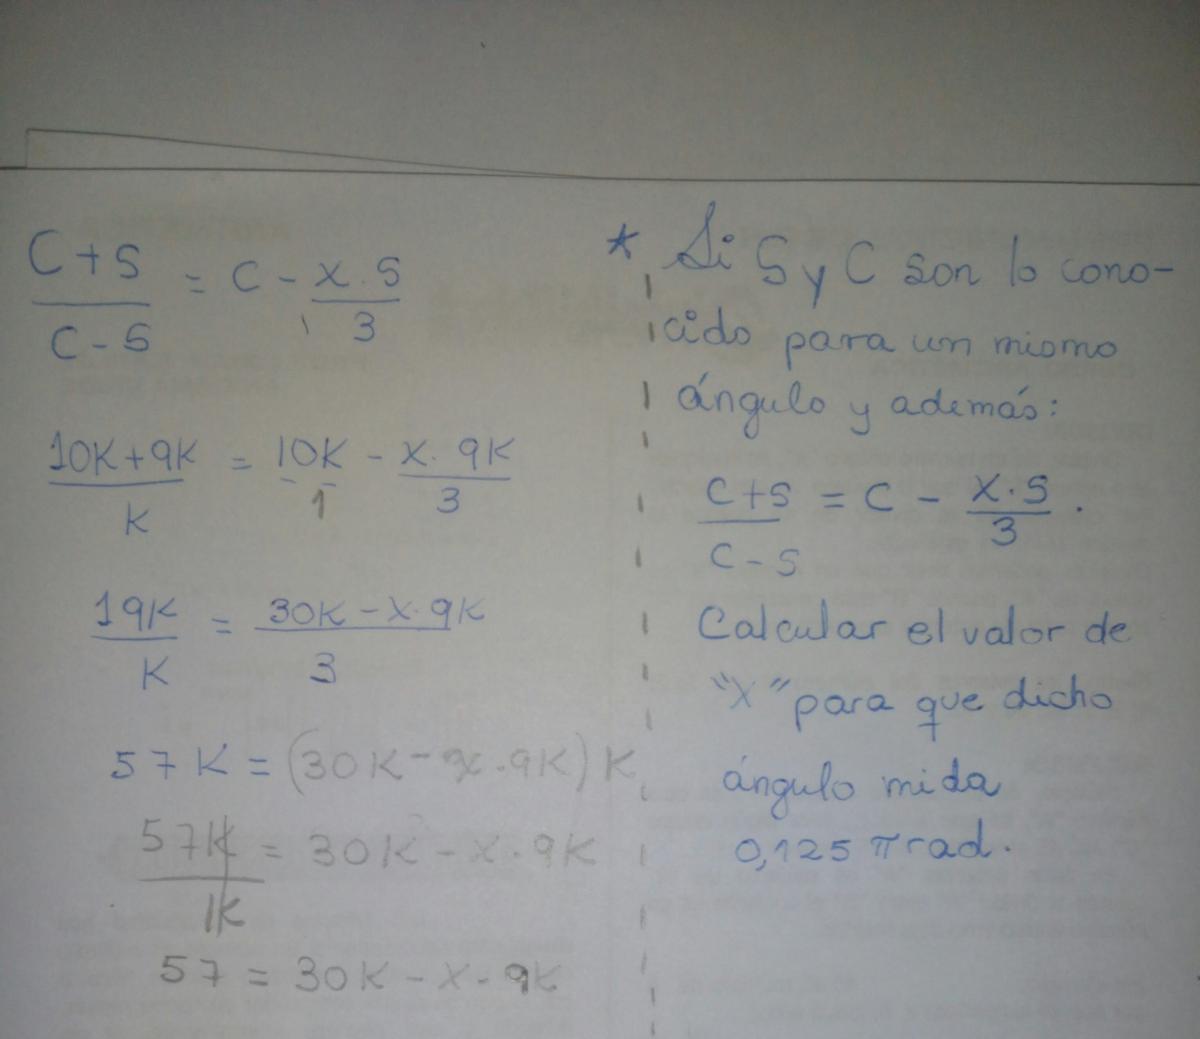 C+S / C-S = C - X.S / 3
10K+9K / K = 10K / 1 - X.9K / 3
19K / K = 30K-X.9K / 3
57K = (30K-X.9K)K
57K / 1K = 30K-X.9K
57 = 30K-X.9K
* Si S y C son lo cono-
cido para un mismo
ángulo y además:
C+S / C-S = C - X.S / 3 .
Calcular el valor de
"X" para que dicho
ángulo mida
0,125 π rad.